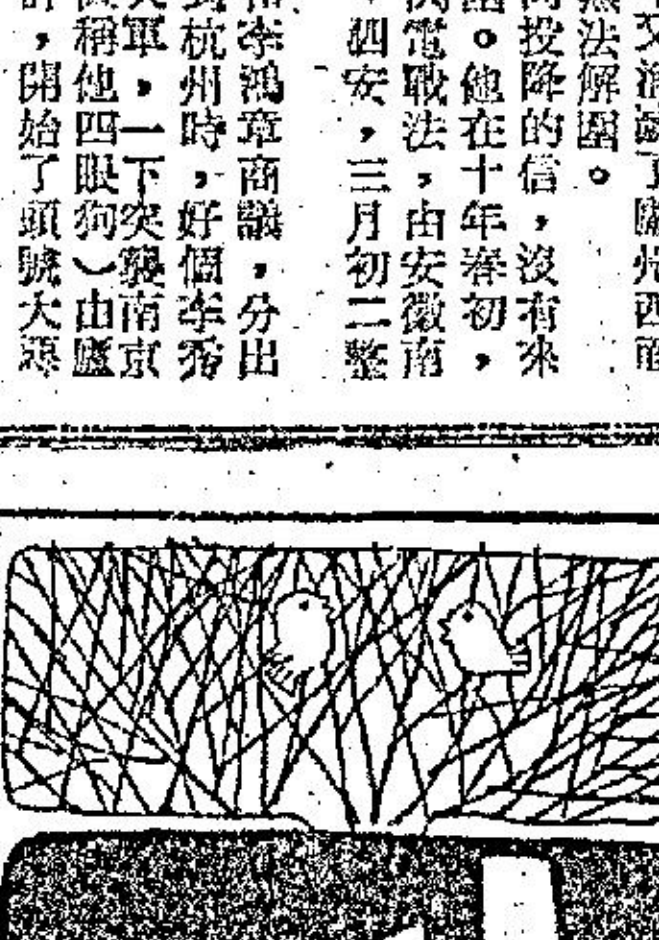 又消滅了州西
法解圍。
投降的信,沒有來
。他在十年春初,
電戰法,由安徽南
泗安,三月初二整
李鴻章商議,分出
杭州時,好個李秀
軍,一下突襲南京
稱他四眼狗)由廬
,開始了頭號大